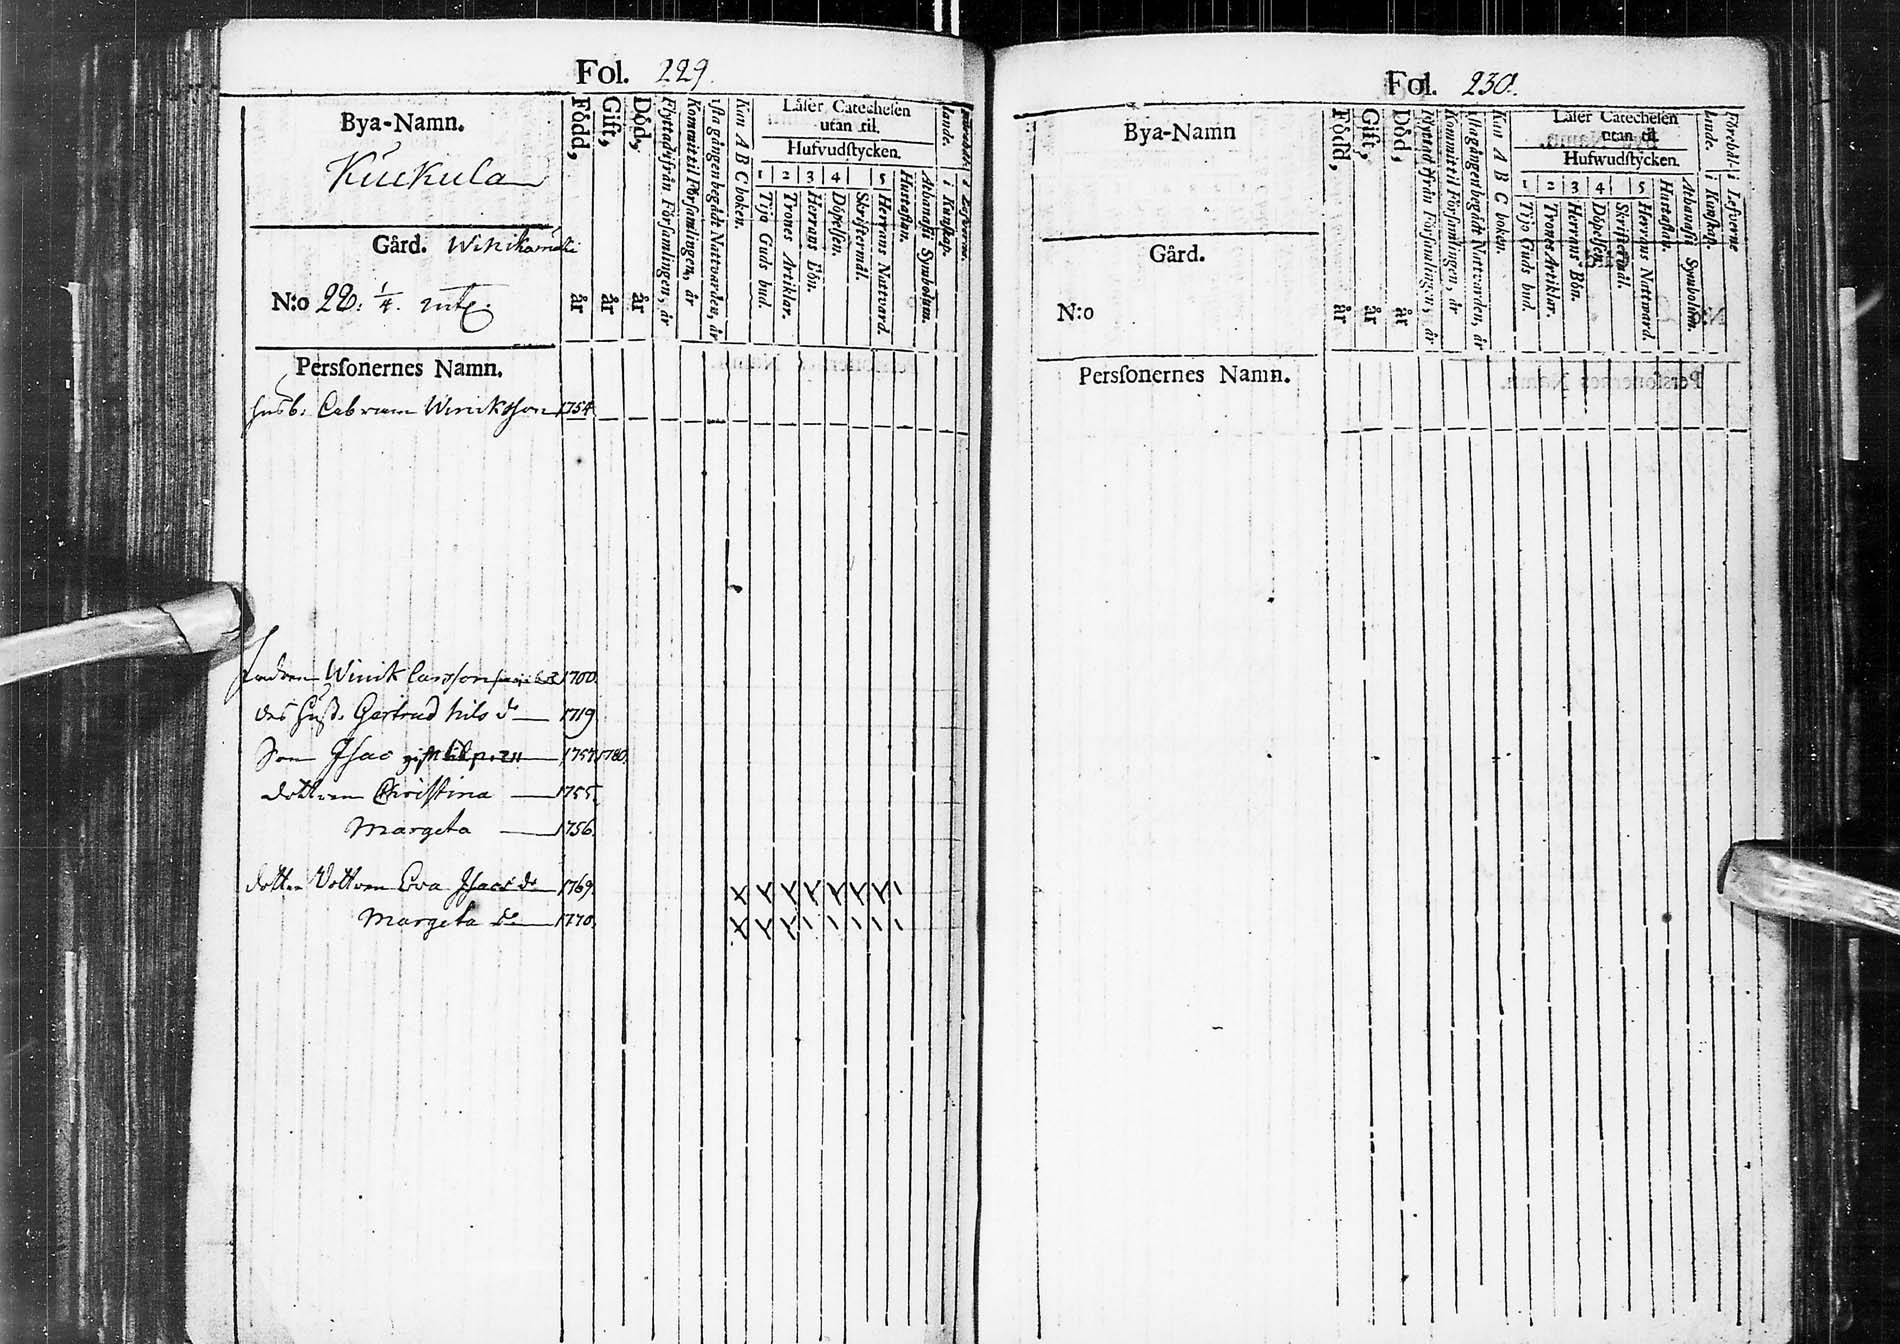 Fol. 229.
Bya-Namn.
Kuckula
Gård.
N:o 28. 1/4.
Perſonernes Namn.
Född, år
Gift, år
Död, år
Flyttad ifrån Förſamlingen, år
Kommit til Förſamlingen, år
1ſta gången begådt Nattvarden, år
Kan A B C boken.
Läſer Catecheſen
utan til.
Hufvudſtycken.
1 2 3 4 5
Tijo Guds bud.
Trones Artiklar.
Herrans Bön.
Döpelſen.
Skriftermål.
Herrans Nattvard.
Huſtaflan.
Athanaſii Symbolum.
lande. i Kunſkap.
husb. Winiksson 1754
Winik Larsson 1700.
des hust. Gertrud Nils dr 1719.
Son Isac gift 1757. 1780.
dottren Christina 1755.
Margeta 1756.
dotter dottren Eva Isacs dr 1769. x x x x x x x ı
Margeta dr 1770. x x x ı ı ı ı ı
Fol. 230.
Bya-Namn
Gård.
N:o
Perſonernes Namn.
Född, år
Gift, år
Död, år
Flyttad ifrån Förſamlingen, år
Kommit til Förſamlingen, år
1ſta gången begådt Nattvarden, år
Kan A B C boken.
Läſer Catecheſen
utan til.
Hufwudſtycken.
1 2 3 4 5
Tijo Guds bud.
Trones Artiklar.
Herrans Bön.
Döpelſen.
Skriftermål.
Herrans Nattward.
Huſtaflan.
Athanaſii Symbolum.
lande. i Kunſkap.
Förehål- i Lefverne